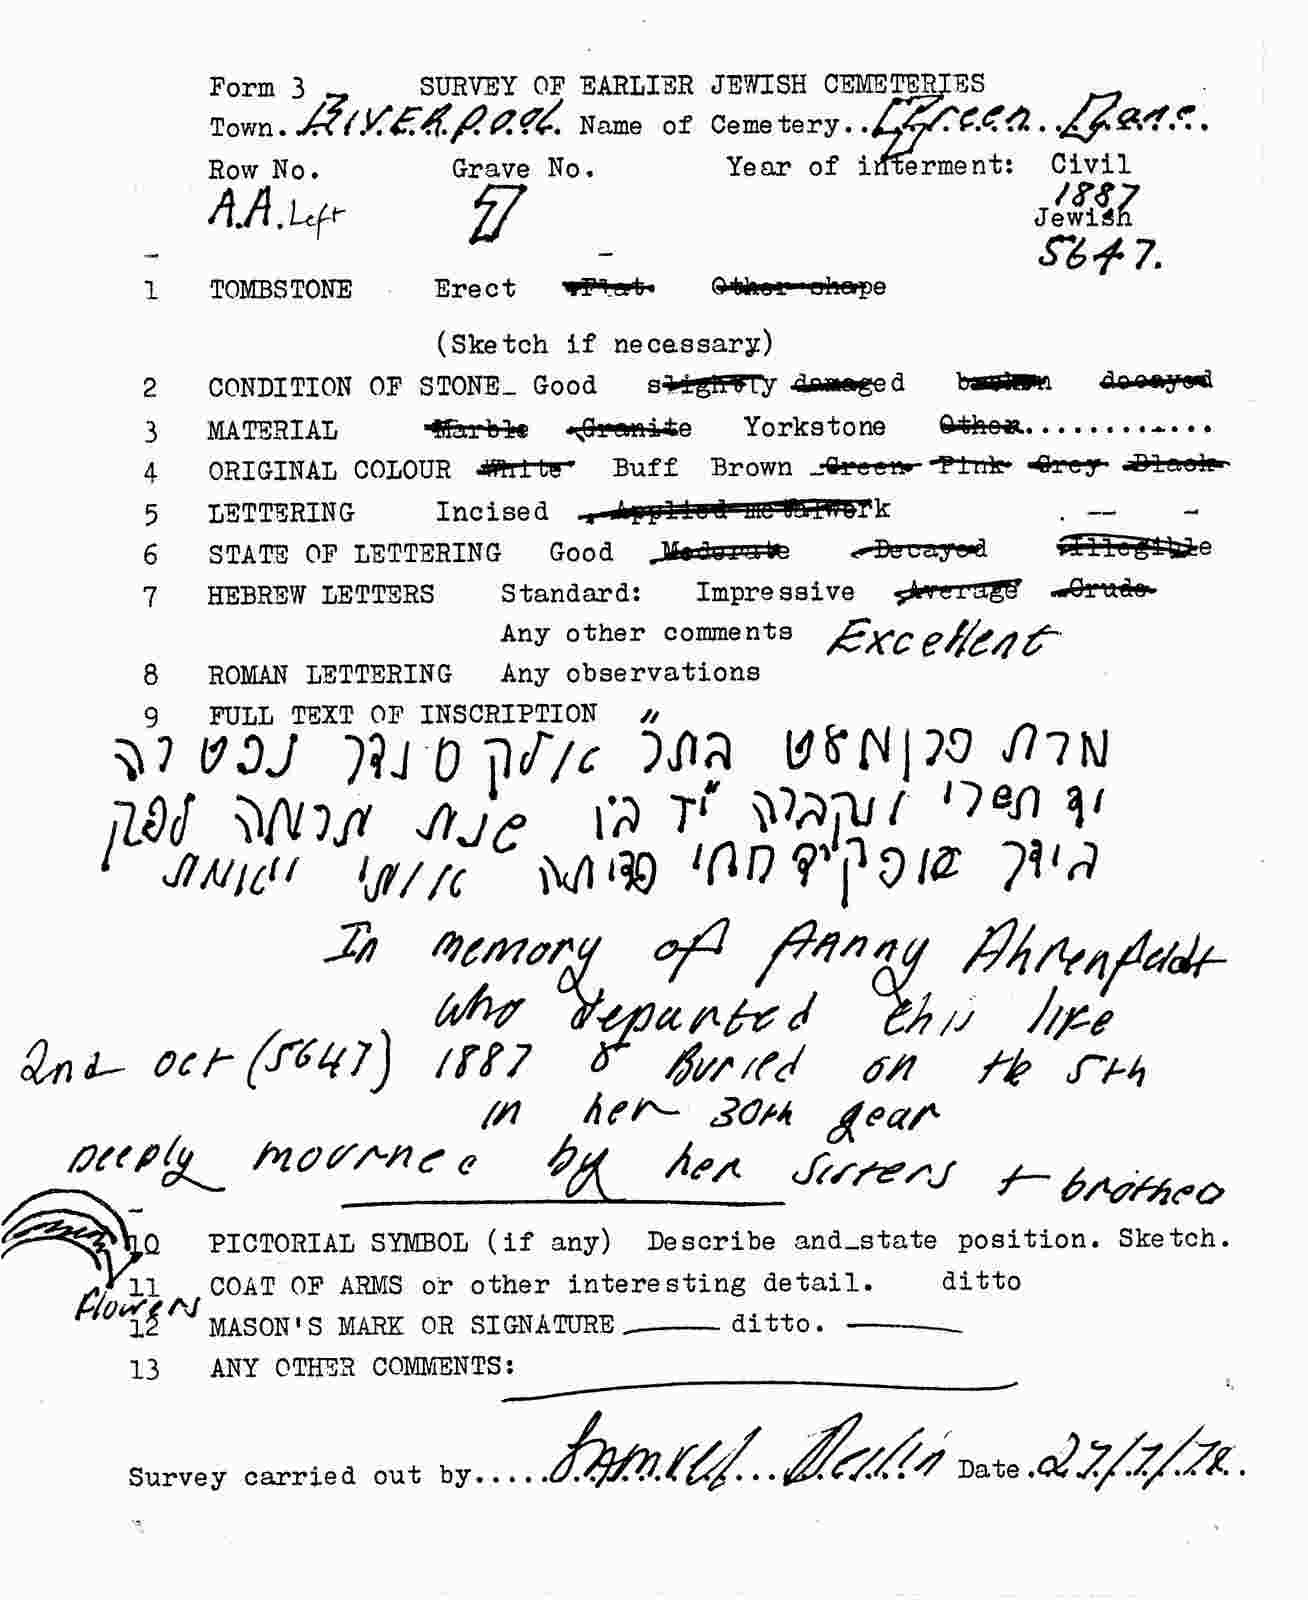 Form 3 SURVEY OF EARLIER JEWISH CEMETERIES
Town. LIVERPOOL. Name of Cemetery.. Green Lane.
Row No. Grave No. Year of interment: Civil
1887
A.A. Left 7 Jewish
5647.
1 TOMBSTONE Erect Flat Other shape
(Sketch if necessary)
2 CONDITION OF STONE_ Good slightly damaged broken decayed
3 MATERIAL Marble Granite Yorkstone Other............
4 ORIGINAL COLOUR White Buff Brown Green Pink Grey Black
5 LETTERING Incised Applied metalwork
6 STATE OF LETTERING Good Moderate Decayed illegible
7 HEBREW LETTERS Standard: Impressive Average Crude
Any other comments Excellent
8 ROMAN LETTERING Any observations
9 FULL TEXT OF INSCRIPTION
מרת בת״ר נפטרה
תשרי ונקברה י״ד בו שנת לפק
בידך אפקיד רוחי פדיתה אותי
In memory of Fanny Ahrenfeldt
who departed this life
2nd oct (5647) 1887 & Buried on the 5th
in her 30th year
Deeply mourned by her sisters + brother
10 PICTORIAL SYMBOL (if any) Describe and_state position. Sketch.
11 COAT OF ARMS or other interesting detail. ditto
Flowers
12 MASON'S MARK OR SIGNATURE ditto.
13 ANY OTHER COMMENTS:
Survey carried out by..... Samuel... Date. 27/7/78..